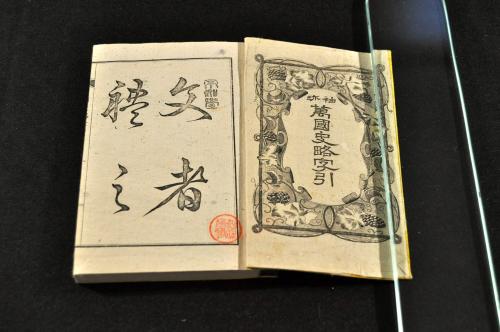 袖珎
萬國史略字引
文者
禮之